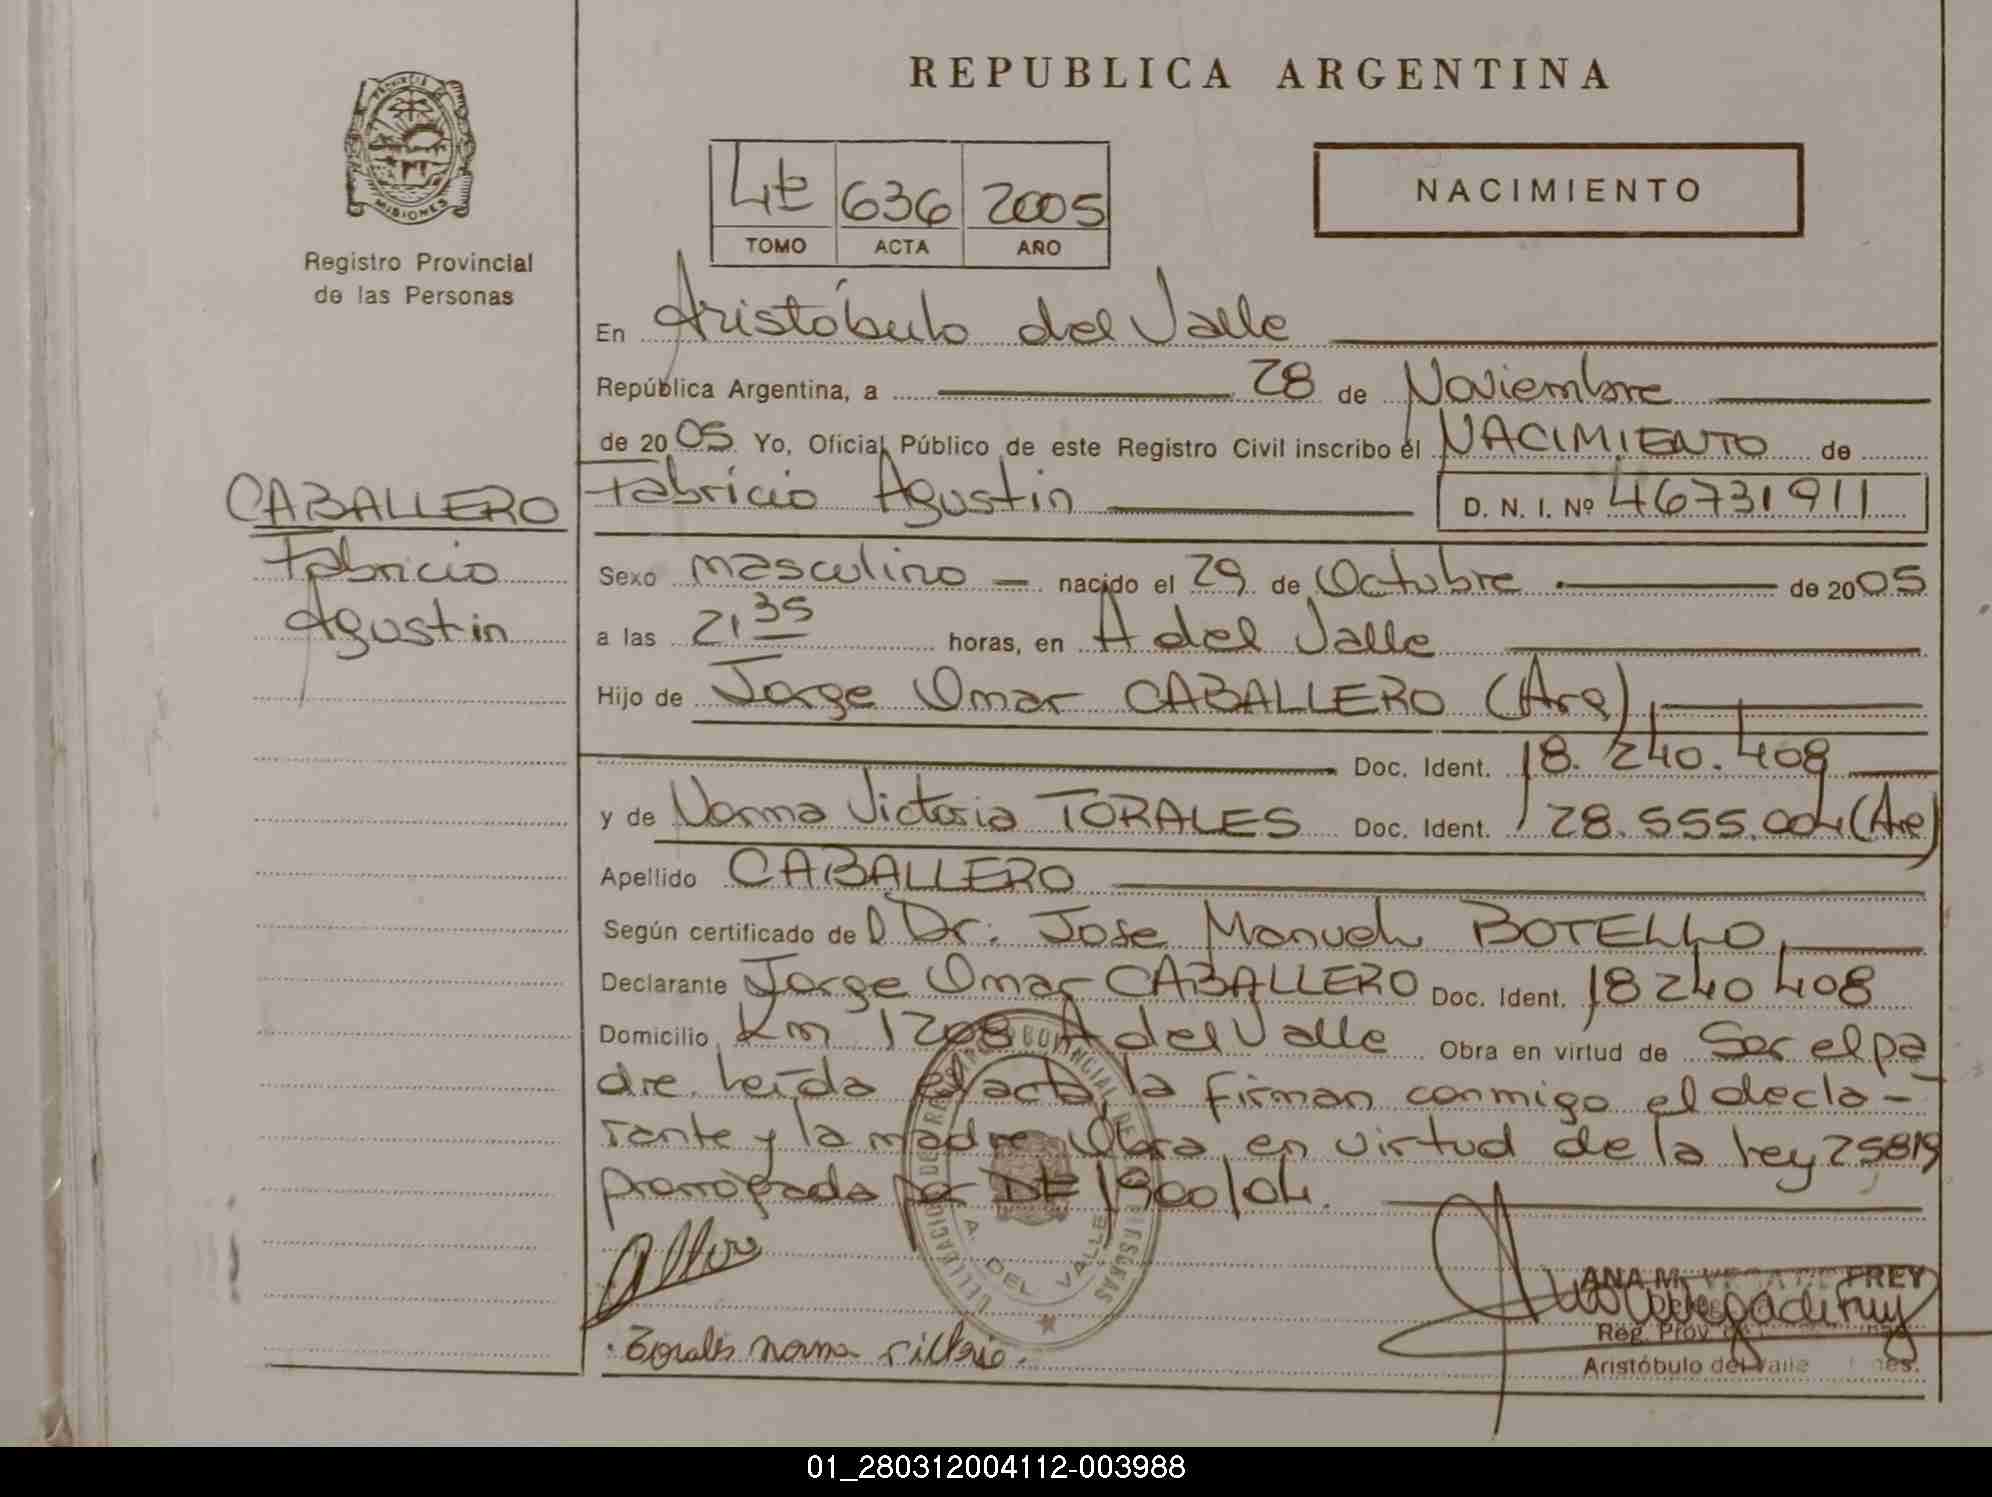 REPUBLICA ARGENTINA
PROVINCIA DE
MISIONES
Registro Provincial
de las Personas
4t 636 2005
TOMO ACTA AÑO
NACIMIENTO
En Aristóbulo del Valle
República Argentina, a 28 de Noviembre
de 2005 Yo, Oficial Público de este Registro Civil inscribo el NACIMIENTO de
Fabricio Agustin D. N. I. Nº 46731911
CABALLERO
Fabricio
Agustin
Sexo masculino nacido el 29 de Octubre de 2005
a las 21 35 horas, en A del Valle
Hijo de Jorge Omar CABALLERO (Arg)
Doc. Ident. 18.240.408
y de Norma Victoria TORALES Doc. Ident. 28.555.004 (Arg)
Apellido CABALLERO
Según certificado del Dr. Jose Manuel BOTELLO
Declarante Jorge Omar CABALLERO Doc. Ident. 18240408
Domicilio Km 1208 A del Valle Obra en virtud de Ser el pa
dre. Leída el acta, la firman conmigo el decla-
rante y la madre Obra en virtud de la ley 25819
prorrogada por DE 1900/04.
A. DEL VALLE
ANA M. FREY
Reg. Prov.
Torales norma victoria.
Aristóbulo del Valle
01_280312004112-003988